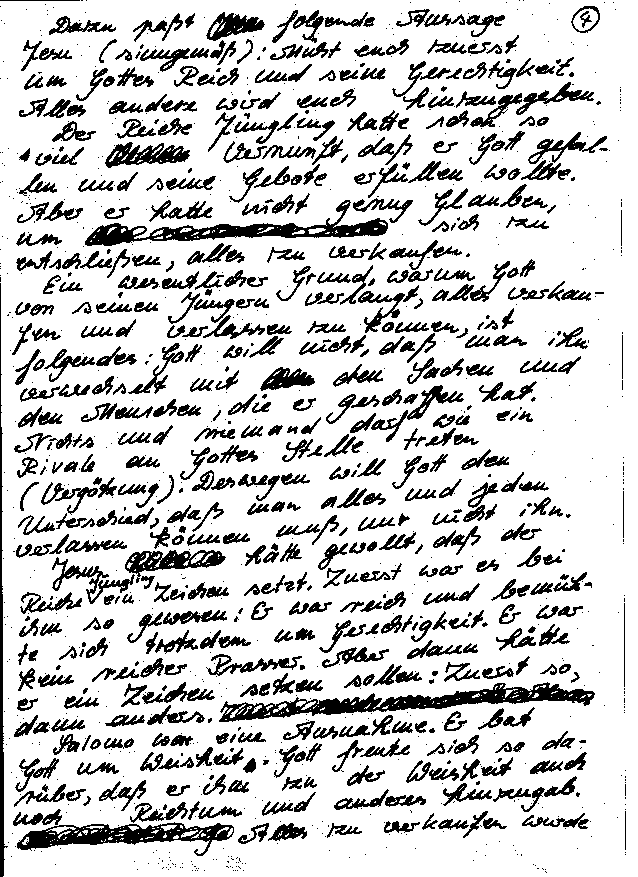 Daran paßt folgende Aussage
4
Jesu (sinngemäß): Müht euch zuerst
um Gottes Reich und seine Gerechtigkeit.
Alles andere wird euch hinzugegeben.
Der Reiche Jüngling hatte schon so
viel Vernunft, daß er Gott gefal-
len und seine Gebote erfüllen wollte.
Aber er hatte nicht genug Glauben,
um sich zu
entschließen, alles zu verkaufen.
Ein wesentlicher Grund, warum Gott
von seinen Jüngern verlangt, alles verkau-
fen und verlassen zu können, ist
folgender: Gott will nicht, daß man ihn
verwechselt mit den Sachen und
den Menschen, die er geschaffen hat.
Nichts und niemand darf wie ein
Rivale an Gottes Stelle treten
(Vergötzung). Deswegen will Gott den
Unterschied, daß man alles und jeden
verlassen können muß, nur nicht ihn.
Jesus hätte gewollt, daß der
Reiche Jüngling ein Zeichen setzt. Zuerst war es bei
ihm so gewesen: Er war reich und bemüh-
te sich trotzdem um Gerechtigkeit. Er war
kein reicher Prasser. Aber dann hätte
er ein Zeichen setzen sollen: Zuerst so,
dann anders.
Salomo war eine Ausnahme. Er bat
Gott um Weisheit. Gott freute sich so da-
rüber, daß er ihm zu der Weisheit auch
noch Reichtum und anderes hinzugab.
Alles zu verkaufen wurde